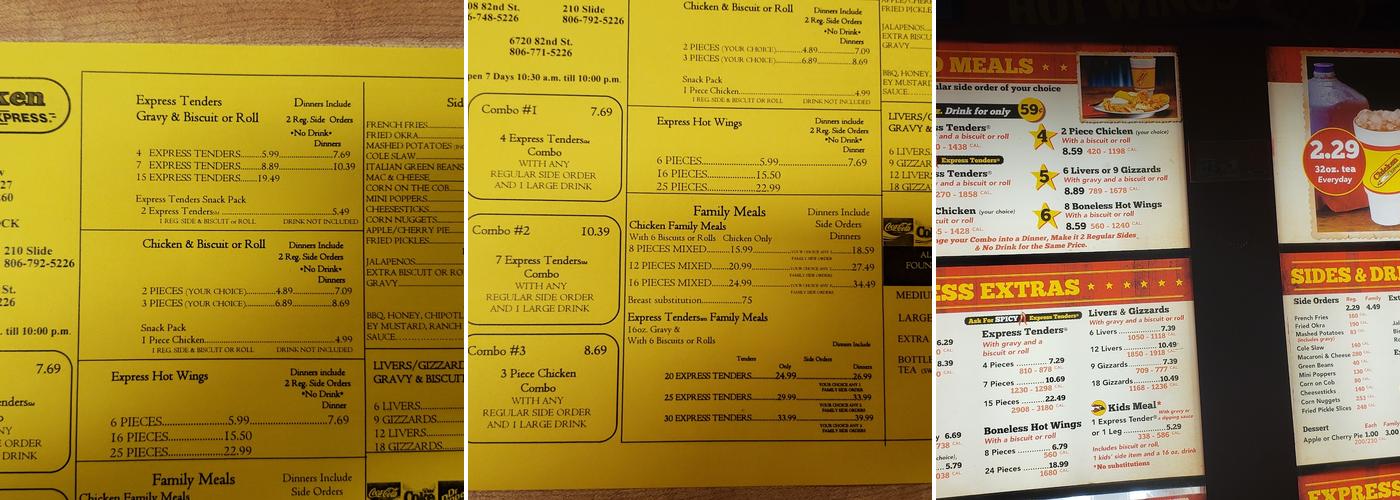 ken
XPRESS.
210 Slide
806-792-5226
. till 10:00 p.m.
7.69
ORDER
DRINK
Express Tenders
Gravy & Biscuit or Roll
Dinners Include
2 Reg. Side Orders
*No Drink*
Dinners
4 EXPRESS TENDERS 5.99 7.69
7 EXPRESS TENDERS 8.89 10.39
15 EXPRESS TENDERS 19.49
Express Tenders Snack Pack
2 Express Tenders 5.49
1 REG SIDE & BISCUIT or ROLL DRINK NOT INCLUDED
Chicken & Biscuit or Roll
Dinners include
2 Reg. Side Orders
*No Drink*
Dinners
2 PIECES (YOUR CHOICE) 4.89 7.09
3 PIECES (YOUR CHOICE) 6.89 8.69
Snack Pack
1 Piece Chicken 4.99
1 REG. SIDE & BISCUIT or ROLL DRINK NOT INCLUDED
Express Hot Wings
Dinners Include
2 Reg. Side Orders
*No Drink*
Dinner
6 PIECES 5.99 7.69
16 PIECES 15.50
25 PIECES 22.99
Family Meals
Chicken Family Meals
Dinners Include
Side Orders
FRENCH FRIES
FRIED OKRA
MASHED POTATOES
COLE SLAW
ITALIAN GREEN BEANS
MAC & CHEESE
CORN ON THE COB
MINI POPPERS
CHEESESTICKS
CORN NUGGETS
APPLE/CHERRY PIE
FRIED PICKLES
JALAPENOS
EXTRA BISCUIT OR RO
GRAVY
BBQ, HONEY, CHIPOTL
EY MUSTARD, RANCH
SAUCE
LIVERS/GIZZARD
GRAVY & BISCUIT
6 LIVERS
9 GIZZARDS
12 LIVERS
18 GIZZARDS
08 82nd St.
6-748-5226
210 Slide
806-792-5226
6720 82nd St.
806-771-5226
pen 7 Days 10:30 a.m. till 10:00 p.m.
Combo #1 7.69
4 Express Tenders
Combo
WITH ANY
REGULAR SIDE ORDER
AND 1 LARGE DRINK
Combo #2 10.39
7 Express Tenders
Combo
WITH ANY
REGULAR SIDE ORDER
AND 1 LARGE DRINK
Combo #3 8.69
3 Piece Chicken
Combo
WITH ANY
REGULAR SIDE ORDER
AND 1 LARGE DRINK
Chicken & Biscuit or Roll
Dinners Include
2 Reg. Side Orders
*No Drink*
Dinners
2 PIECES (YOUR CHOICE) 4.89 7.09
3 PIECES (YOUR CHOICE) 6.89 8.69
Snack Pack
1 Piece Chicken 4.99
1 REG. SIDE & BISCUIT or ROLL DRINK NOT INCLUDED
Express Hot Wings
Dinners Include
2 Reg. Side Orders
*No Drink*
Dinner
6 PIECES 5.99 7.69
16 PIECES 15.50
25 PIECES 22.99
Family Meals
Chicken Family Meals
Dinners Include
Side Orders
With 6 Biscuits or Rolls Chicken Only Dinner
8 PIECES MIXED 15.99 18.59
12 PIECES MIXED 20.99 27.49
16 PIECES MIXED 24.99 34.49
Breast substitution .75
Express Tenders Family Meals
16oz. Gravy &
With 6 Biscuits or Rolls
Dinners Include
Tenders Only Side Orders
20 EXPRESS TENDERS 24.99 26.99
25 EXPRESS TENDERS 29.99 33.99
30 EXPRESS TENDERS 33.99 39.99
FRIED PICKLE
JALAPENOS
EXTRA BISCU
GRAVY
BBQ, HONEY,
EY MUSTARD
SAUCE
LIVERS/
GRAVY &
6 LIVERS
9 GIZZAR
12 LIVER
18 GIZZA
MEDIUM
LARGE
EXTRA
BOTTL
TEA
HOT WINGS
O MEALS
ular side order of your choice
. Drink for only 59¢
4 2 Piece Chicken (your choice)
With gravy and a biscuit or roll
8.59 420 - 1198 CAL.
5 6 Livers or 9 Gizzards
With gravy and a biscuit or roll
8.89 789 - 1678 CAL.
6 8 Boneless Hot Wings
8.59 560 - 1240 CAL.
nge your Combo into a Dinner, Make it 2 Regular Sides
& No Drink for the Same Price.
ESS EXTRAS
Ask For SPICY Express Tenders
Express Tenders®
With gravy and a
biscuit or roll
4 Pieces 7.29
810 - 878 CAL.
7 Pieces 10.69
1230 - 1298 CAL.
15 Pieces 22.49
2908 - 3180 CAL.
Boneless Hot Wings
8 Pieces 6.79
560 CAL.
24 Pieces 18.99
1680 CAL.
Livers & Gizzards
With gravy and a biscuit or roll
6 Livers 7.39
1050 - 1118 CAL.
12 Livers 10.49
1850 - 1918 CAL.
9 Gizzards 7.39
709 - 777 CAL.
18 Gizzards 10.49
1168 - 1236 CAL.
Kids Meal*
1 Express Tender® With gravy or a dipping sauce
or 1 Leg 5.29
338 - 586 CAL.
Includes biscuit or roll,
1 kids' side item and a 16 oz. drink
*No substitutions
2.29
32oz. tea
Everyday
SIDES & DRI
Side Orders Reg. Family
2.29 4.49
French Fries 160
Fried Okra 190
Mashed Potatoes 83
(includes gravy)
Cole Slaw 160
Macaroni & Cheese 280
Green Beans 40
Mini Poppers 130
Corn on Cob
Cheesesticks
Corn Nuggets 253
Fried Pickle Slices 248
Dessert Each Family
Apple or Cherry Pie 1.00 3.00
EXPRESS